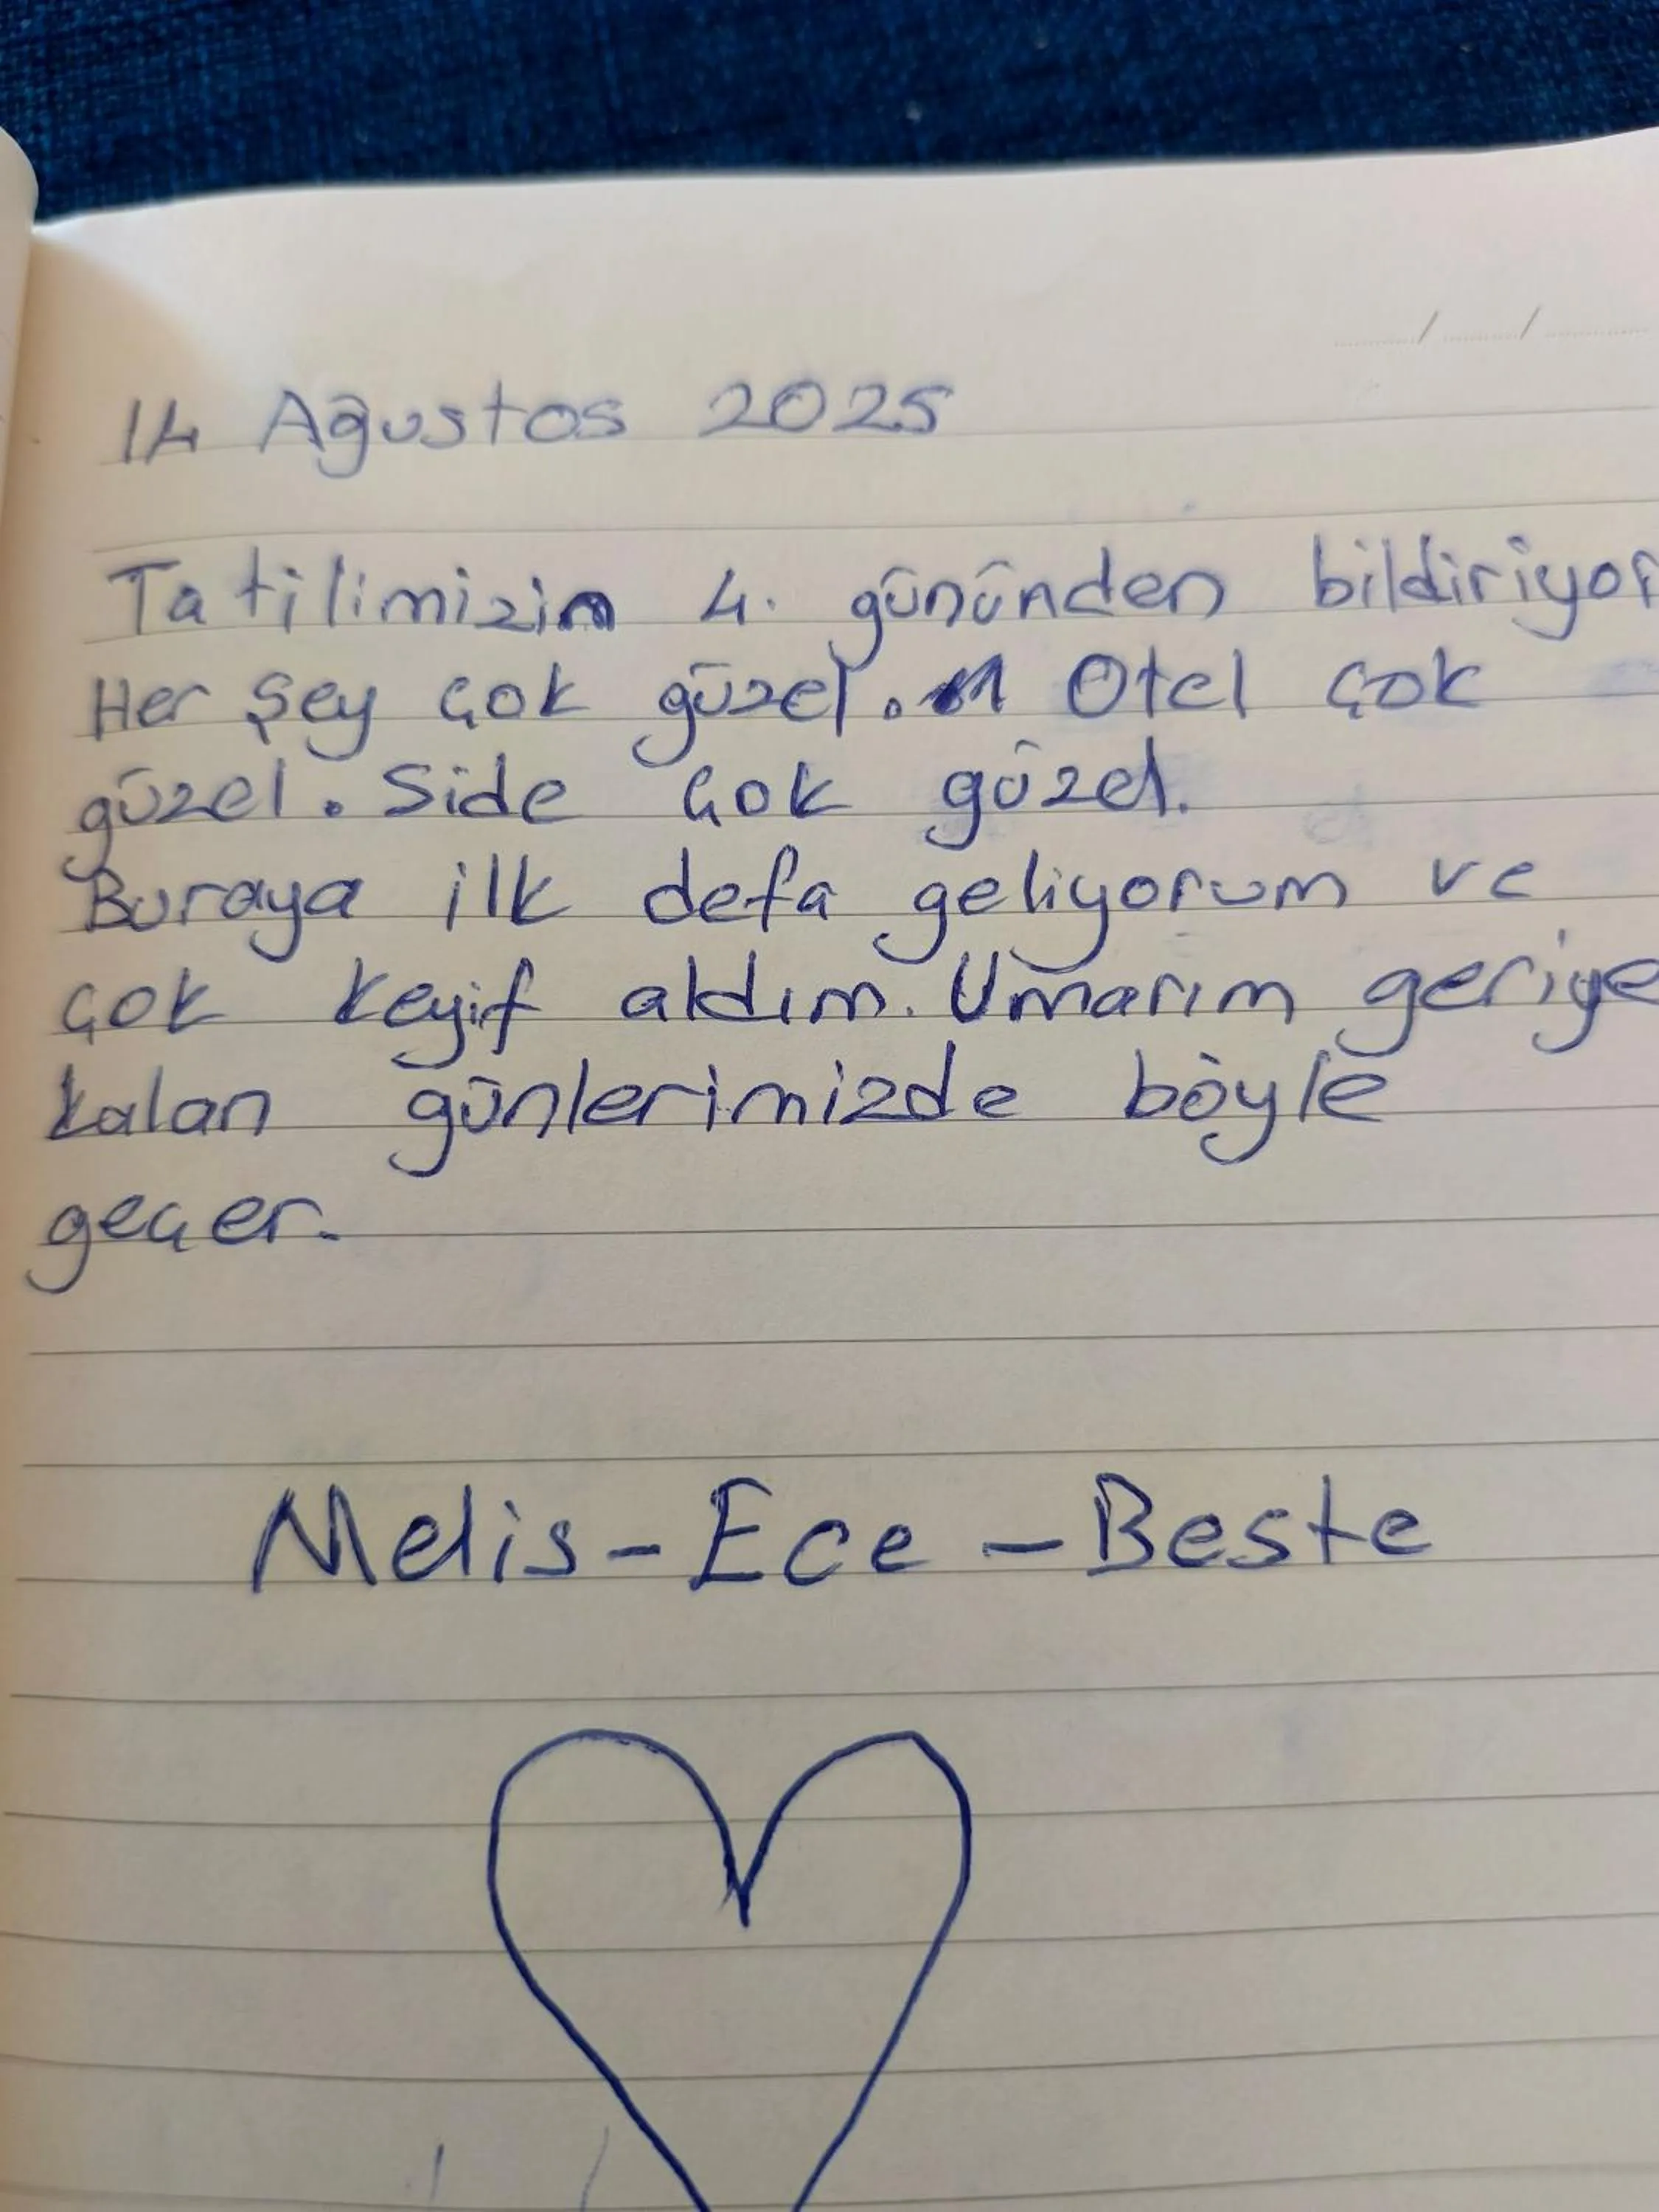 14 Ağustos 2025
Tatilimizin 4. gününden bildiriyor
Her şey çok güzel. Otel çok
güzel. Side çok güzel.
Buraya ilk defa geliyorum ve
çok keyif aldım. Umarım geriye
kalan günlerimizde böyle
geçer.
Melis-Ece-Beste